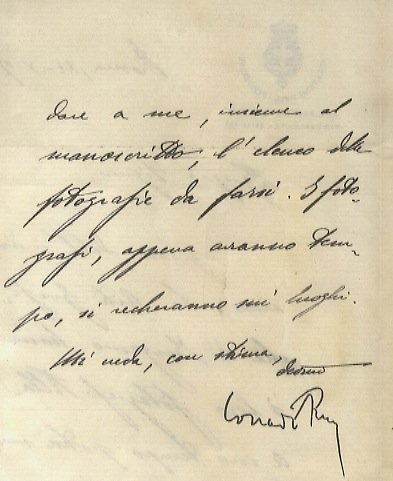 dare a me, insieme al
manoscritto, l'elenco delle
fotografie da farsi. I foto-
grafi, appena avranno tem-
po, si recheranno sui luoghi.
Mi creda, con stima,
devmo
Corrado Ricci